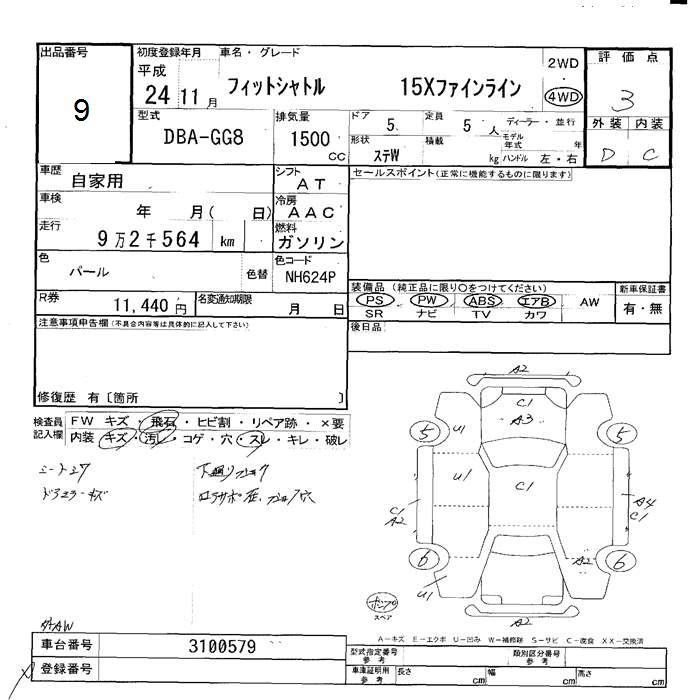 出品番号
9
初度登録年月
平成
24 11 月
車名・グレード
フィットシャトル 15Xファインライン
2WD
4WD
評価点
3
外装 内装
D C
型式
DBA-GG8
排気量
1500
CC
ドア 5
定員 5 人
ディーラー・並行
形状 ステW
積載 kg
モデル年式 年
ハンドル 左・右
車歴
自家用
シフト
AT
車検
年 月( 日)
冷房
AAC
走行
9万2千564 km
燃料
ガソリン
色
パール
色替
色コード
NH624P
R券
11,440 円
名変通知期限
月 日
セールスポイント(正常に機能するものに限ります)
装備品 (純正品に限り○をつけてください)
PS PW ABS エアB AW
SR ナビ TV カワ
新車保証書
有・無
後日品
注意事項申告欄(不具合内容等は具体的に記入して下さい)
修復歴 有〔箇所 〕
検査員記入欄
FW キズ・飛石・ヒビ割・リペア跡・×要
内装 キズ・汚レ・コゲ・穴・スレ・キレ・破レ
A2
C1
A3
5
5
U1
U1
C1
C1
A2
A4
C1
6
6
A2
U1
A2
スペア
A-キズ E-エクボ U-凹み W-補修跡 S-サビ C-腐食 XX-交換済
車台番号
3100579
登録番号
型式指定番号
参考
類別区分番号
参考
車庫証明用
参考
長さ cm
幅 cm
高さ cm